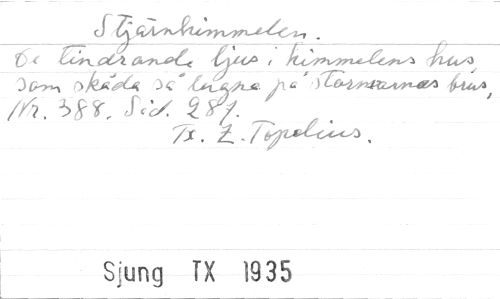 Stjärnhimmelen.
De tindrande ljus i himmelens hus,
som skåda så lugna på stormarnas brus,
Nr. 388. Sid. 287.
Tx. Z. Topelius.
Sjung TX 1935